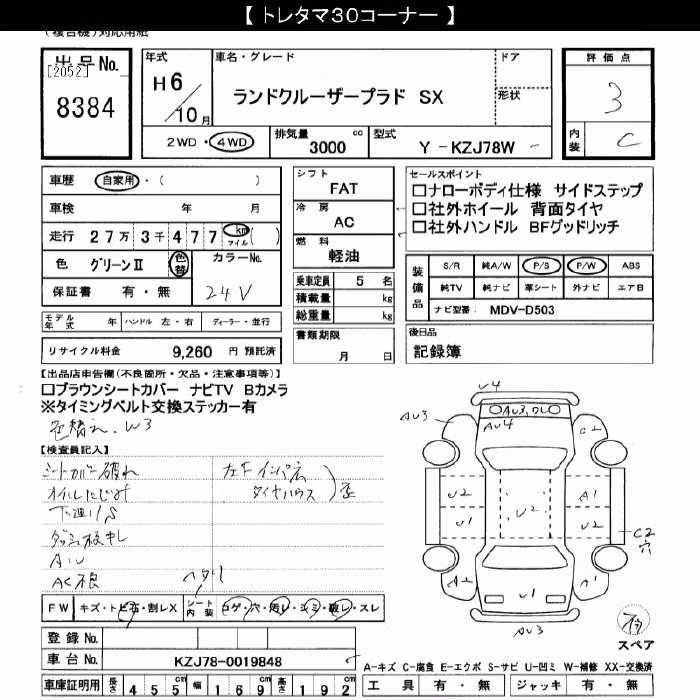 【 トレタマ30コーナー 】
（複合機）対応用紙
出品No.
[2052]
8384
年式
H6
10月
車名・グレード
ランドクルーザープラド SX
ドア
形状
2WD・4WD
排気量
3000 cc
型式
Y - KZJ78W -
評価点
3
内装
C
車歴 自家用・（ ）
車検 年 月
走行 27万3千477 km マイル ( )
色 グリーンII 色替 カラーNo.
24V
保証書 有・無
モデル年式 年 ハンドル 左・右 ディーラー・並行
リサイクル料金 9,260 円 預託済
シフト
FAT
冷房
AC
燃料
軽油
乗車定員 5 名
積載量 kg
総重量 kg
書類期限
月 日
セールスポイント
□ナローボディ仕様 サイドステップ
□社外ホイール 背面タイヤ
□社外ハンドル BFグッドリッチ
装備品
S/R 純A/W P/S P/W ABS
純TV 純ナビ 革シート 外ナビ エアB
ナビ型番: MDV-D503
後日品
記録簿
【出品店申告欄(不良箇所・欠品・注意事項等)】
□ブラウンシートカバー ナビTV Bカメラ
※タイミングベルト交換ステッカー有
色替え、W3
【検査員記入】
シートカバー破れ
オイルにじみ
下廻りS
A.U
AC不良
左Fインパネ
タイヤハウス
歪
ヘタリ
FW キズ・トビ石・割レX
シート内装 コゲ・穴・汚レ・シミ・破レ・スレ
登録No.
車台No. KZJ78-0019848
車庫証明用 長さ 455 幅 169 高さ 192
U4
AU3, U2
AU3
AU4
C2
U2
U2
A1
U1
U2
C2
穴
A2
A2
U1
AU3
スペア
A-キズ C-腐食 E-エクボ S-サビ U-凹ミ W-補修 XX-交換済
工具 有・無 ジャッキ 有・無